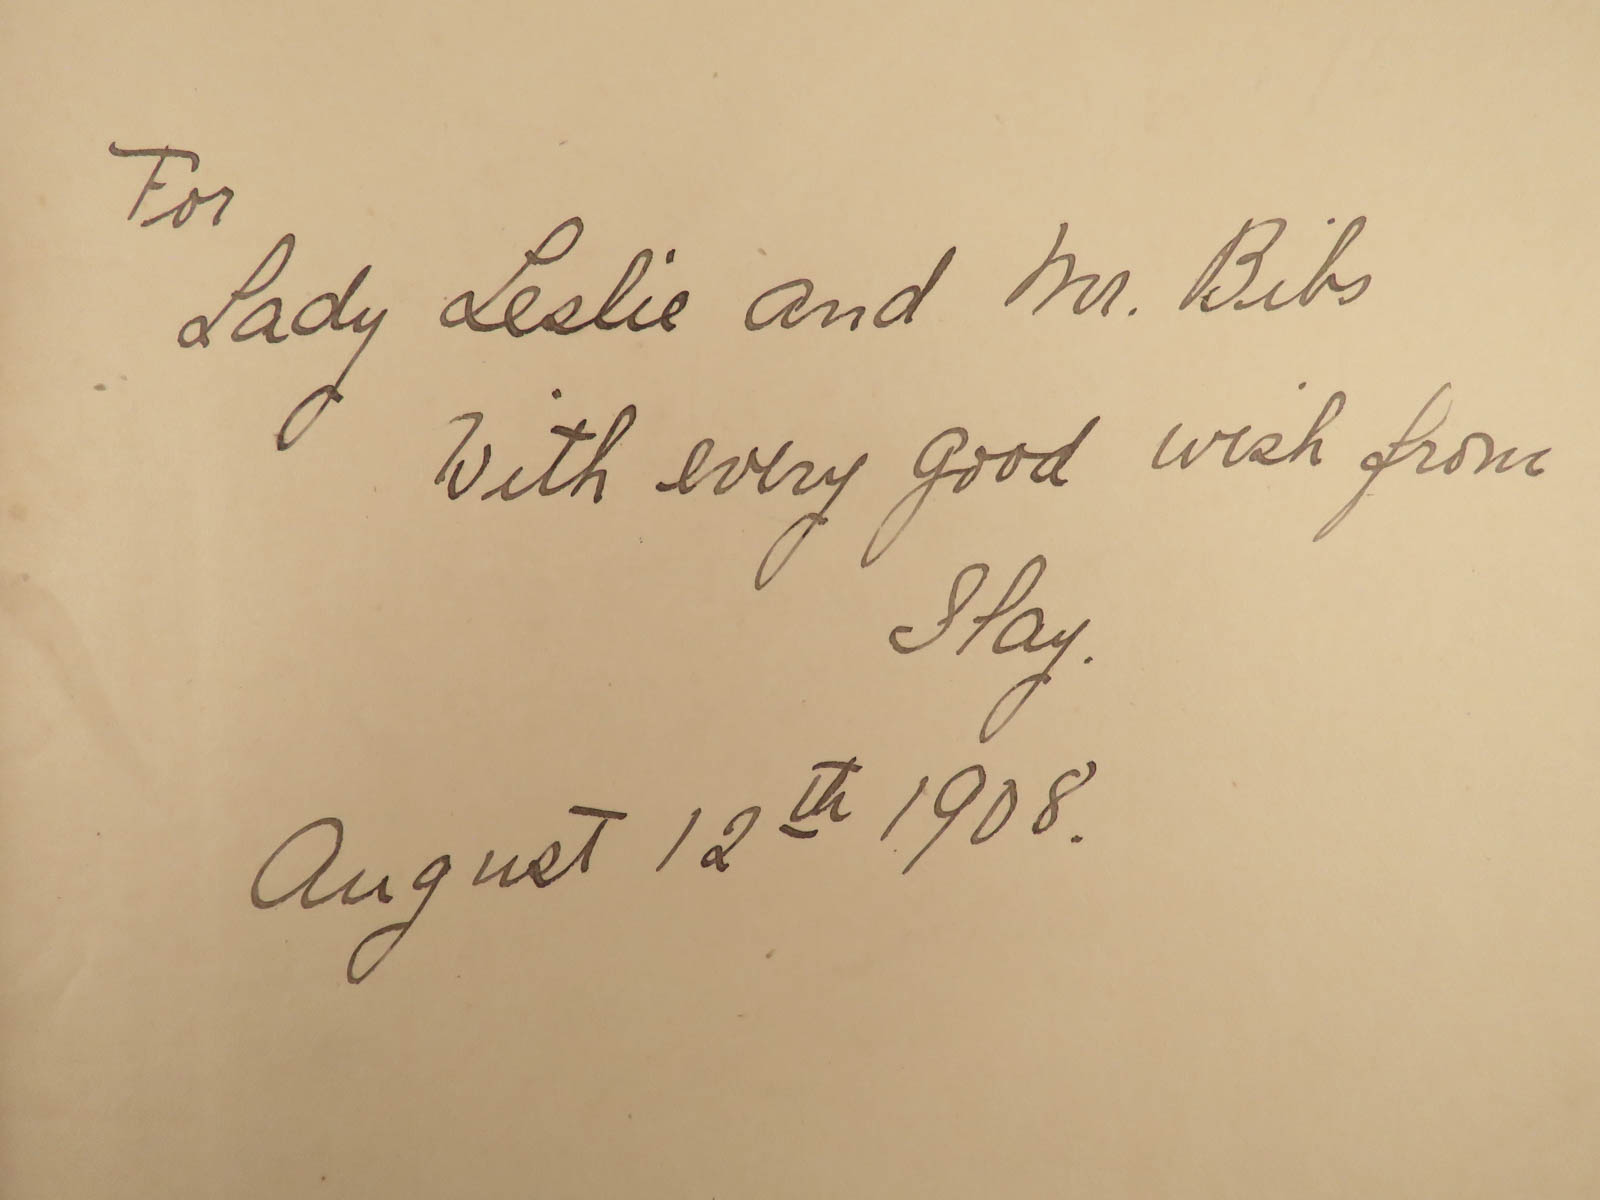 For
Lady Leslie and Mr. Bibs
With every good wish from
August 12th 1908.